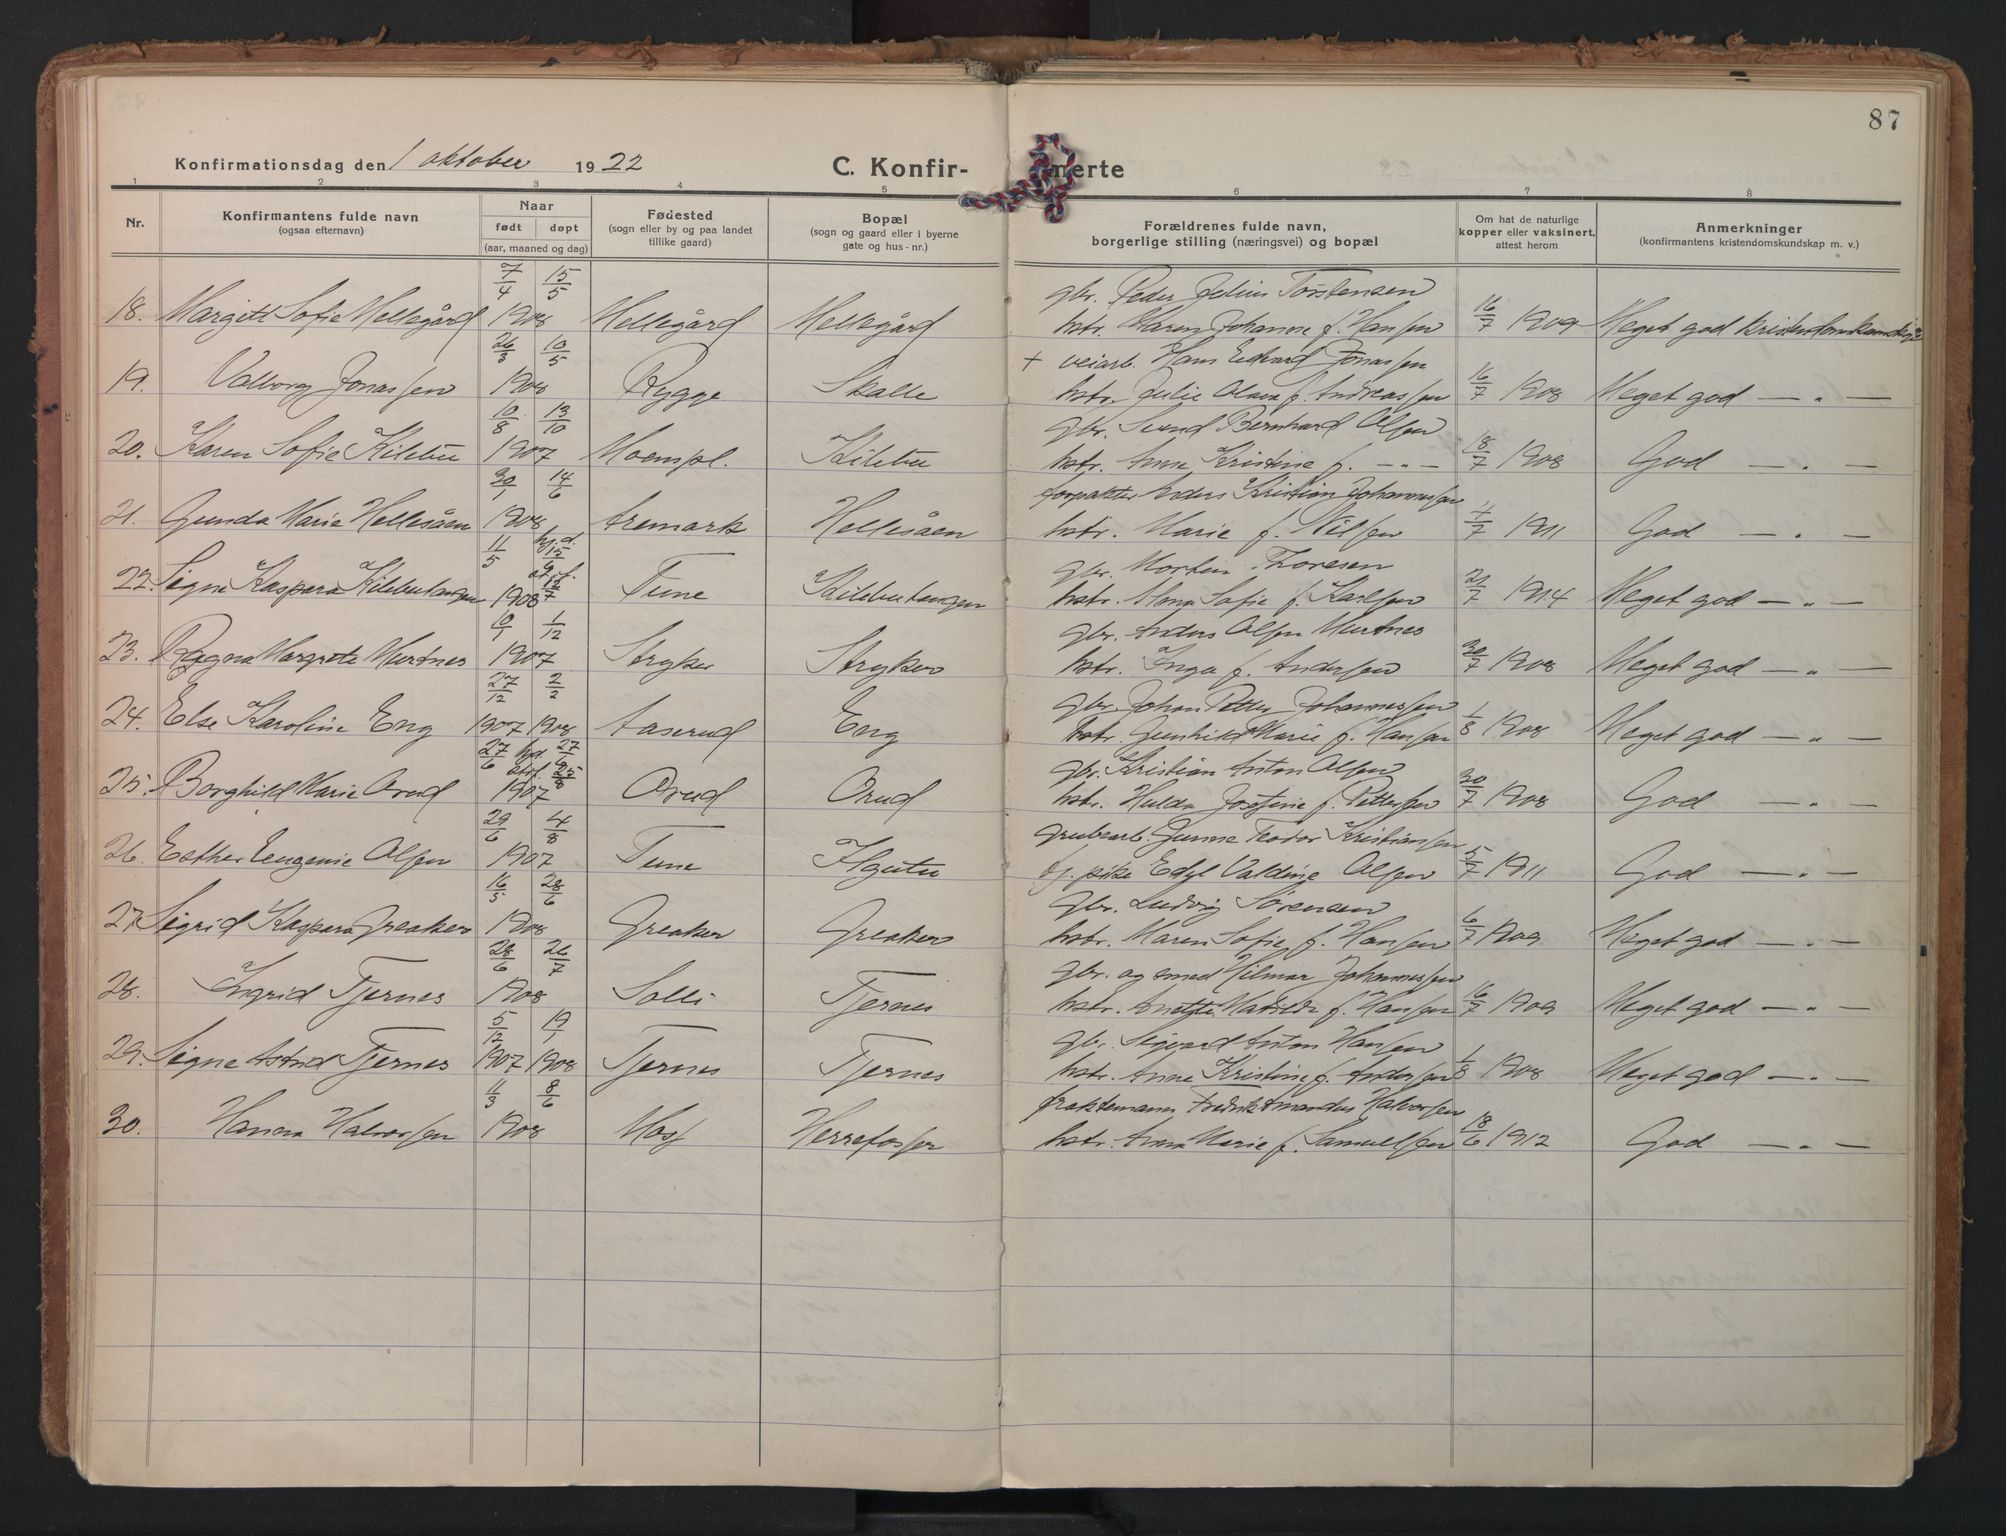 87
Konfirmationsdag den 1 oktober 1922 C. Konfirmerte
1 2 3 4 5 6 7 8
Nr. Konfirmantens fulde navn (ogsaa efternavn) Naar født døpt (aar, maaned og dag) Fødested (sogn eller by og paa landet tillike gaard) Bopæl (sogn og gaard eller i byerne gate og hus-nr.) Forældrenes fulde navn, borgerlige stilling (næringsvei) og bopæl Om hat de naturlige kopper eller vaksinert, attest herom Anmerkninger (konfirmantens kristendomskundskap m. v.)
7/4 15/5 gbr. Peder Julius Torstensen
18. Margit Sofie Hellegård 1908 Hellegård Hellegård hstr. Maren Johanne f. Hansen 16/7 1909 Meget god kristendomskundskap
26/3 10/5 + veiarb. Hans Edvard Jonassen
19. Valborg Jonassen 1908 Rygge Skalle hstr. Julie Olava f. Andreassen 16/7 1908 Meget god — " —
10/8 13/10 gbr. Svend Bernhard Olsen
20. Karen Sofie Kilebu 1907 Moenspl. Kilebu hstr. Anne Kristine f. — " — 18/7 1908 God — " —
30/1 14/6 forpakter Anders Kristian Johannessen
21. Gunda Marie Hellesåen 1908 Aremark Hellesåen hstr. Marie f. Nilsen 4/7 1911 God — " —
11/5 hj.d. 15/6 st.f. 12/7 gbr. Morten Thoresen
22. Signe Kaspara Kilebutangen 1908 Tune Kilebutangen hstr. Alma Sofie f. Karlsen 21/7 1914 Meget god — " —
10/1 1/12 gbr. Anders Olsen Murtnes
23. Ragna Margrete Murtnes 1907 Stryker Stryker hstr. Inga f. Andersen 30/7 1908 Meget god — " —
27/12 2/2 gbr. Johan Petter Johannessen
24. Else Karoline Eng 1907 1908 Aaserud Eng hstr. Gunhild Marie f. Hansen 1/8 1908 Meget god — " —
27/6 hjd. 27/6 stf. 25/8 gbr. Kristian Anton Olsen
25. Borghild Marie Orud 1907 Orud Orud hstr. Hulda Josefine f. Pettersen 30/7 1908 God — " —
29/6 4/8 grubearb. Gunne Teodor Kristiansen
26. Esther Eugenie Olsen 1907 Tune og pike Edyl Valdine Olsen 5/7 1911 God — " —
16/5 28/6 gbr. Ludvig Sørensen
27. Sigrid Kaspara Greaker 1908 Greaker Greaker hstr. Maren Sofie f. Hansen 6/7 1909 Meget god — " —
28/6 26/7 gbr. og smed Hilmar Johannessen
28. Ingrid Tjernes 1908 Solli Tjernes hstr. Anette Matilde f. Hansen 16/7 1909 Meget god — " —
5/12 19/1 gbr. Sigvard Anton Hansen
29. Signe Astrid Tjernes 1907 1908 Tjernes Tjernes hstr. Anne Kristine f. Andersen 1/8 1908 Meget god — " —
11/3 8/6 Fredrik Amandus Halvorsen
30. Hanna Halvorsen 1908 Moss Herrefossen hstr. Anna Marie f. Samuelsen 18/6 1912 God — " —